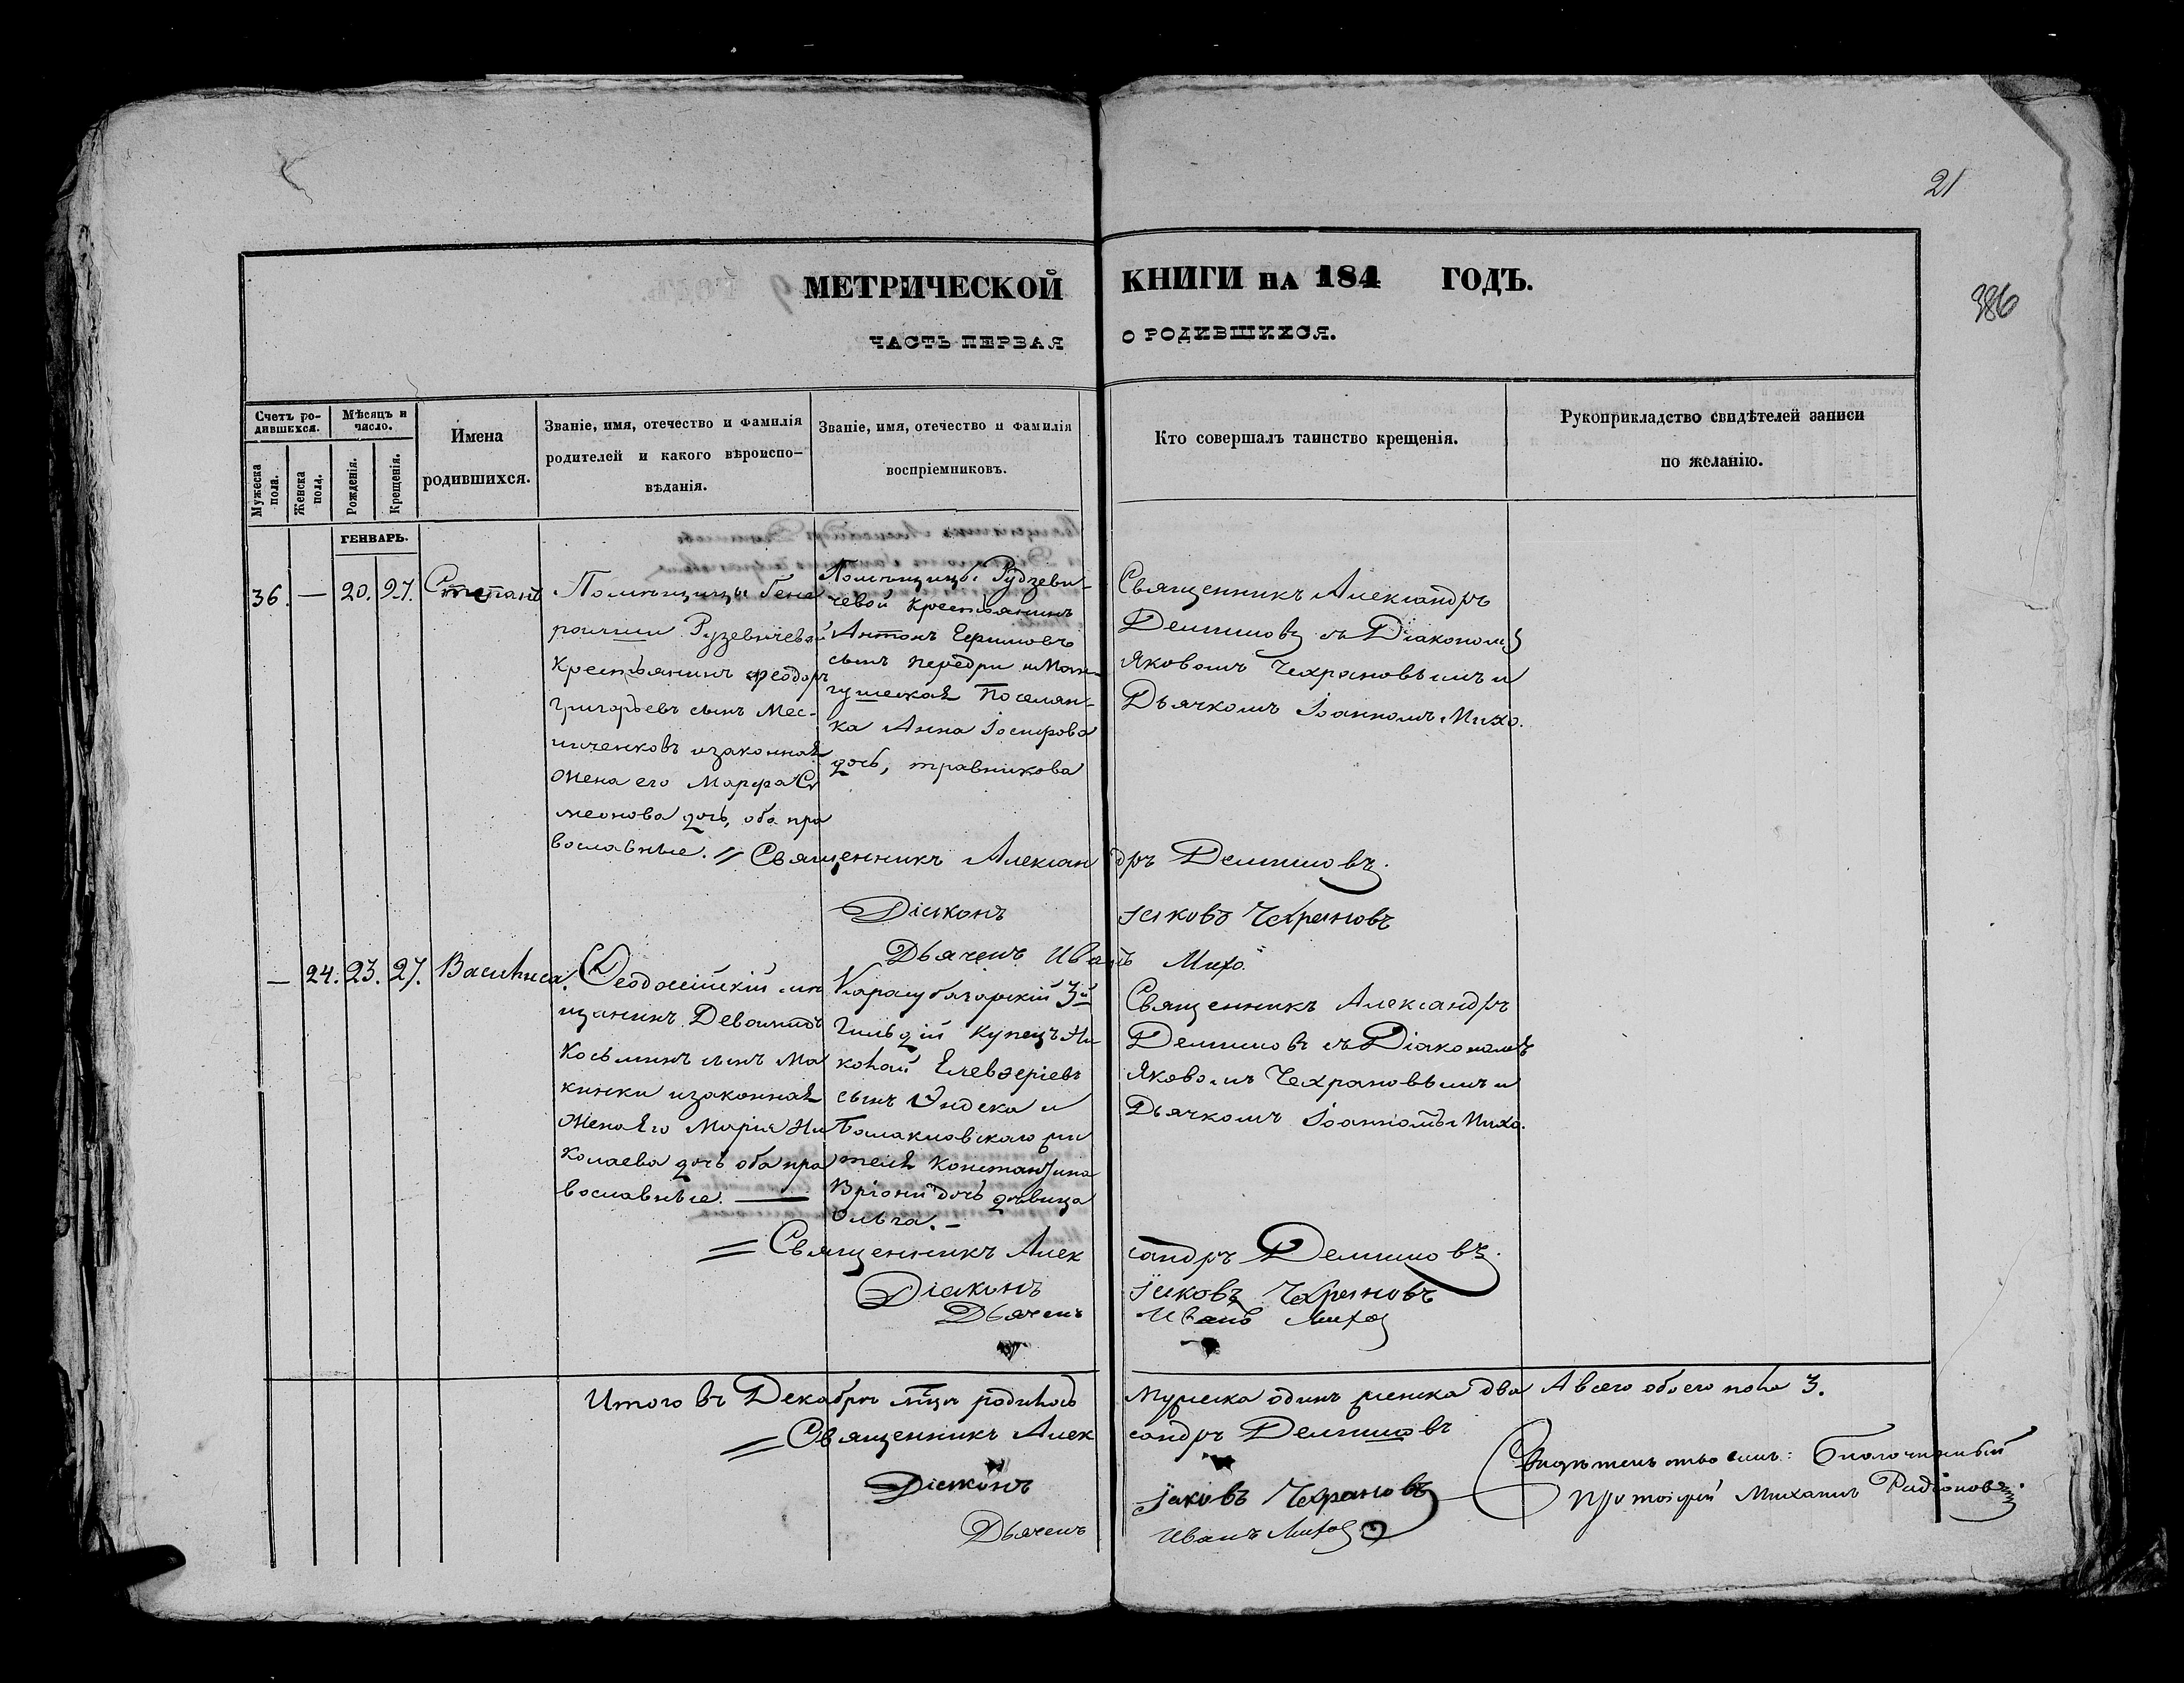 21
386
МЕТРИЧЕСКОЙ КНИГИ НА 184 ГОДЪ.
ЧАСТЬ ПЕРВАЯ О РОДИВШИХСЯ.
Счетъ ро-
дившихся.
Мужеска пола.
Женска пола.
Мѣсяцъ и
число.
Рожденія.
Крещенія.
Имена
родившихся.
Званіе, имя, отечество и фамилія
родителей и какого вѣроиспо-
вѣданія.
Званіе, имя, отечество и фамилія
воспріемниковъ.
Кто совершалъ таинство крещенія.
Рукоприкладство свидѣтелей записи
по желанію.
ГЕНВАРЬ.
36. — 20. 27. Стефанъ
Помѣщицы Гене
ральши Рузевичевой
Крестьянинъ Феодоръ
Григорьевъ сынъ Мес-
ниченковъ и законная
жена его Марфа Си
меонова дочь, оба пра
вославные.
Помѣщицы Рудзеви-
чевой Крестьянинъ
Антонъ Ефимовъ
сынъ Передри и Ман-
гушская Поселян-
ка Анна Іосифова
дочь, травникова
Священникъ Александръ
Демишовъ съ Діакономъ
Яковомъ Чехрановымъ и
Дьячкомъ Іоанномъ Михо.
Священникъ Александръ Демишовъ.
Діаконъ Іаковъ Чехрановъ
Дьячекъ Иванъ Михо
— 24. 23. 27. Василиса.
Феодосійскій мѣ
щанинъ
Косьминъ сынъ Ма
кинки и законная
жена Его Марія Ни
колаева дочь оба пра
вославные.
Карасубазарскій 3й
Гильдіи Купецъ Ни
колай Елевѳеріевъ
сынъ Индека и
Балаклавскаго жи
теля Константина
Вріони дочь дѣвица
Ольга.
Священникъ Александръ
Демишовъ съ Діакономъ
Яковомъ Чехрановымъ и
Дьячкомъ Іоанномъ Михо.
Священникъ Александръ Демишовъ.
Діаконъ Іаковъ Чехрановъ
Дьячекъ Иванъ Михо
Итого въ Декабрѣ мцѣ родилось Мужеска одинъ женска два А всего обоего пола 3.
Священникъ Александръ Демишовъ
Діаконъ Іаковъ Чехрановъ
Дьячекъ Иванъ Михо
Свидѣтельствовалъ: Благочинный
Протоіерей Михаилъ Радіоновъ.